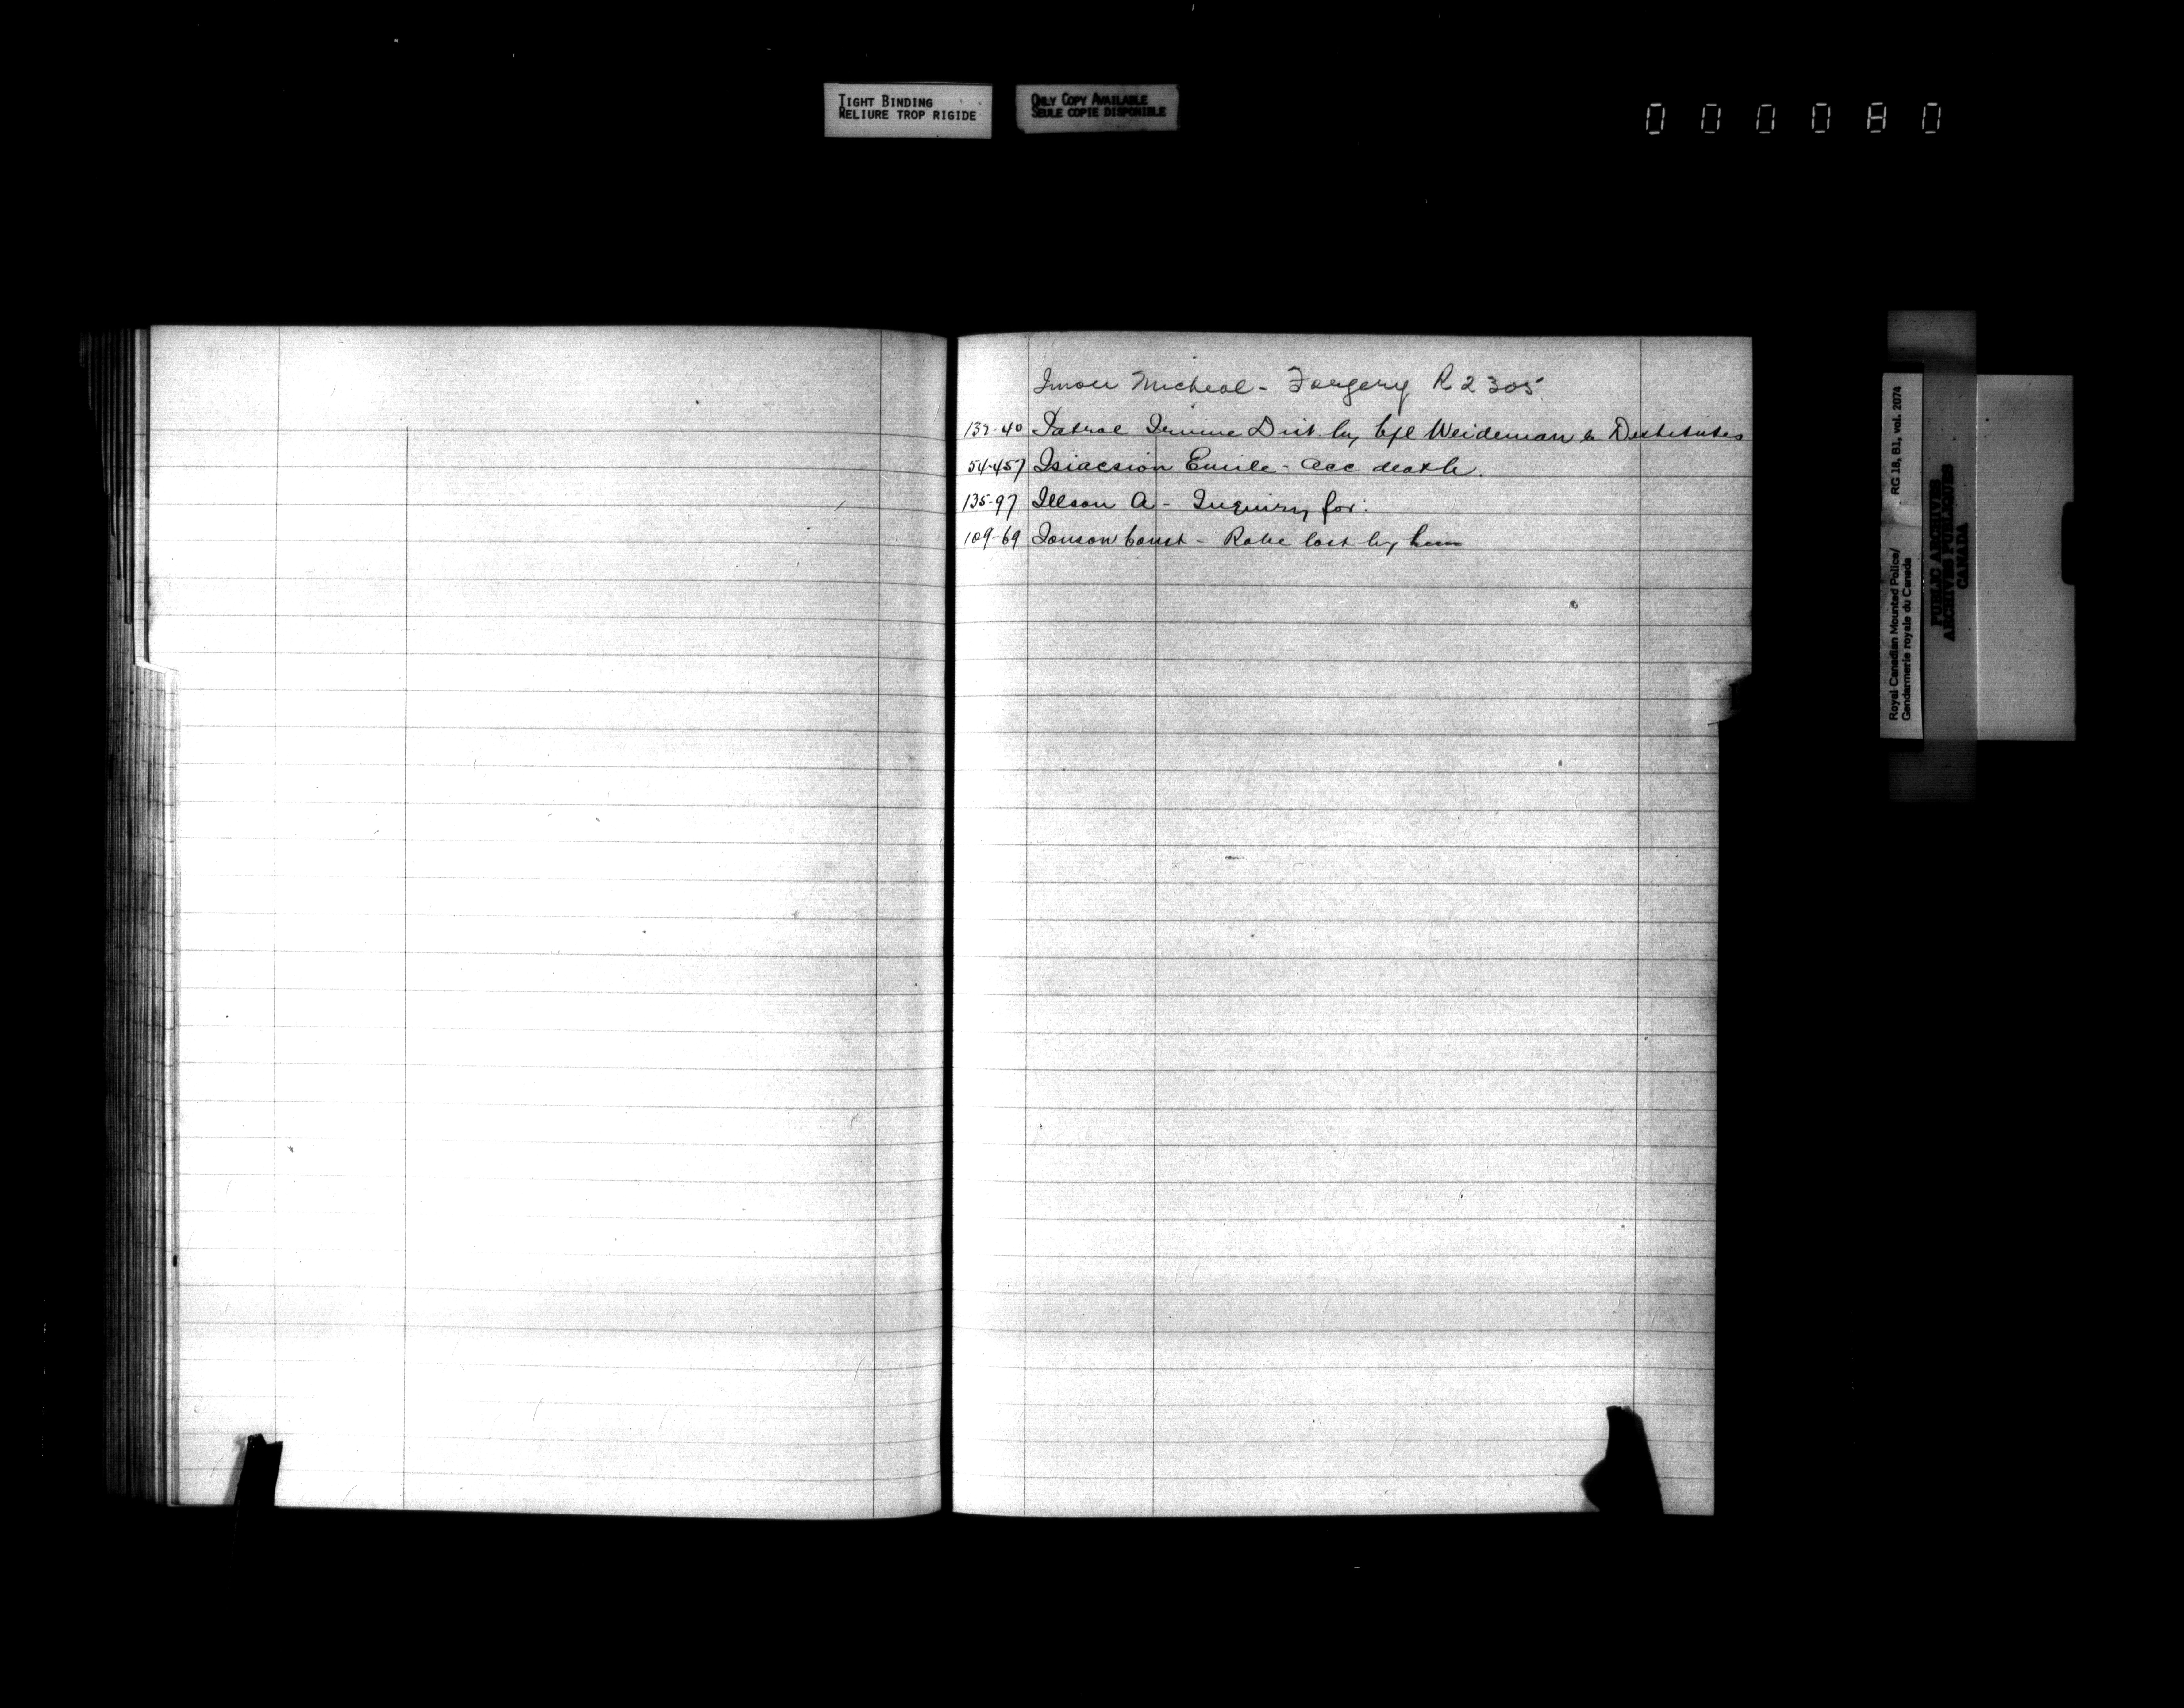 TIGHT BINDING
RELIURE TROP RIGIDE
ONLY COPY AVAILABLE
SEULE COPIE DISPONIBLE
000080
Micheal - Forgery R2305.
132-40 Patrol Dist by Cpl Weideman to Destitutes
54-457 Isiacsion Emile - acc death.
135-97 Illson A - Inquiry for.
109-69 Ionson Const - Robe lost by him
Royal Canadian Mounted Police/
Gendarmerie royale du Canada
RG 18, B1, vol. 2074
PUBLIC ARCHIVES
ARCHIVES PUBLIQUES
CANADA